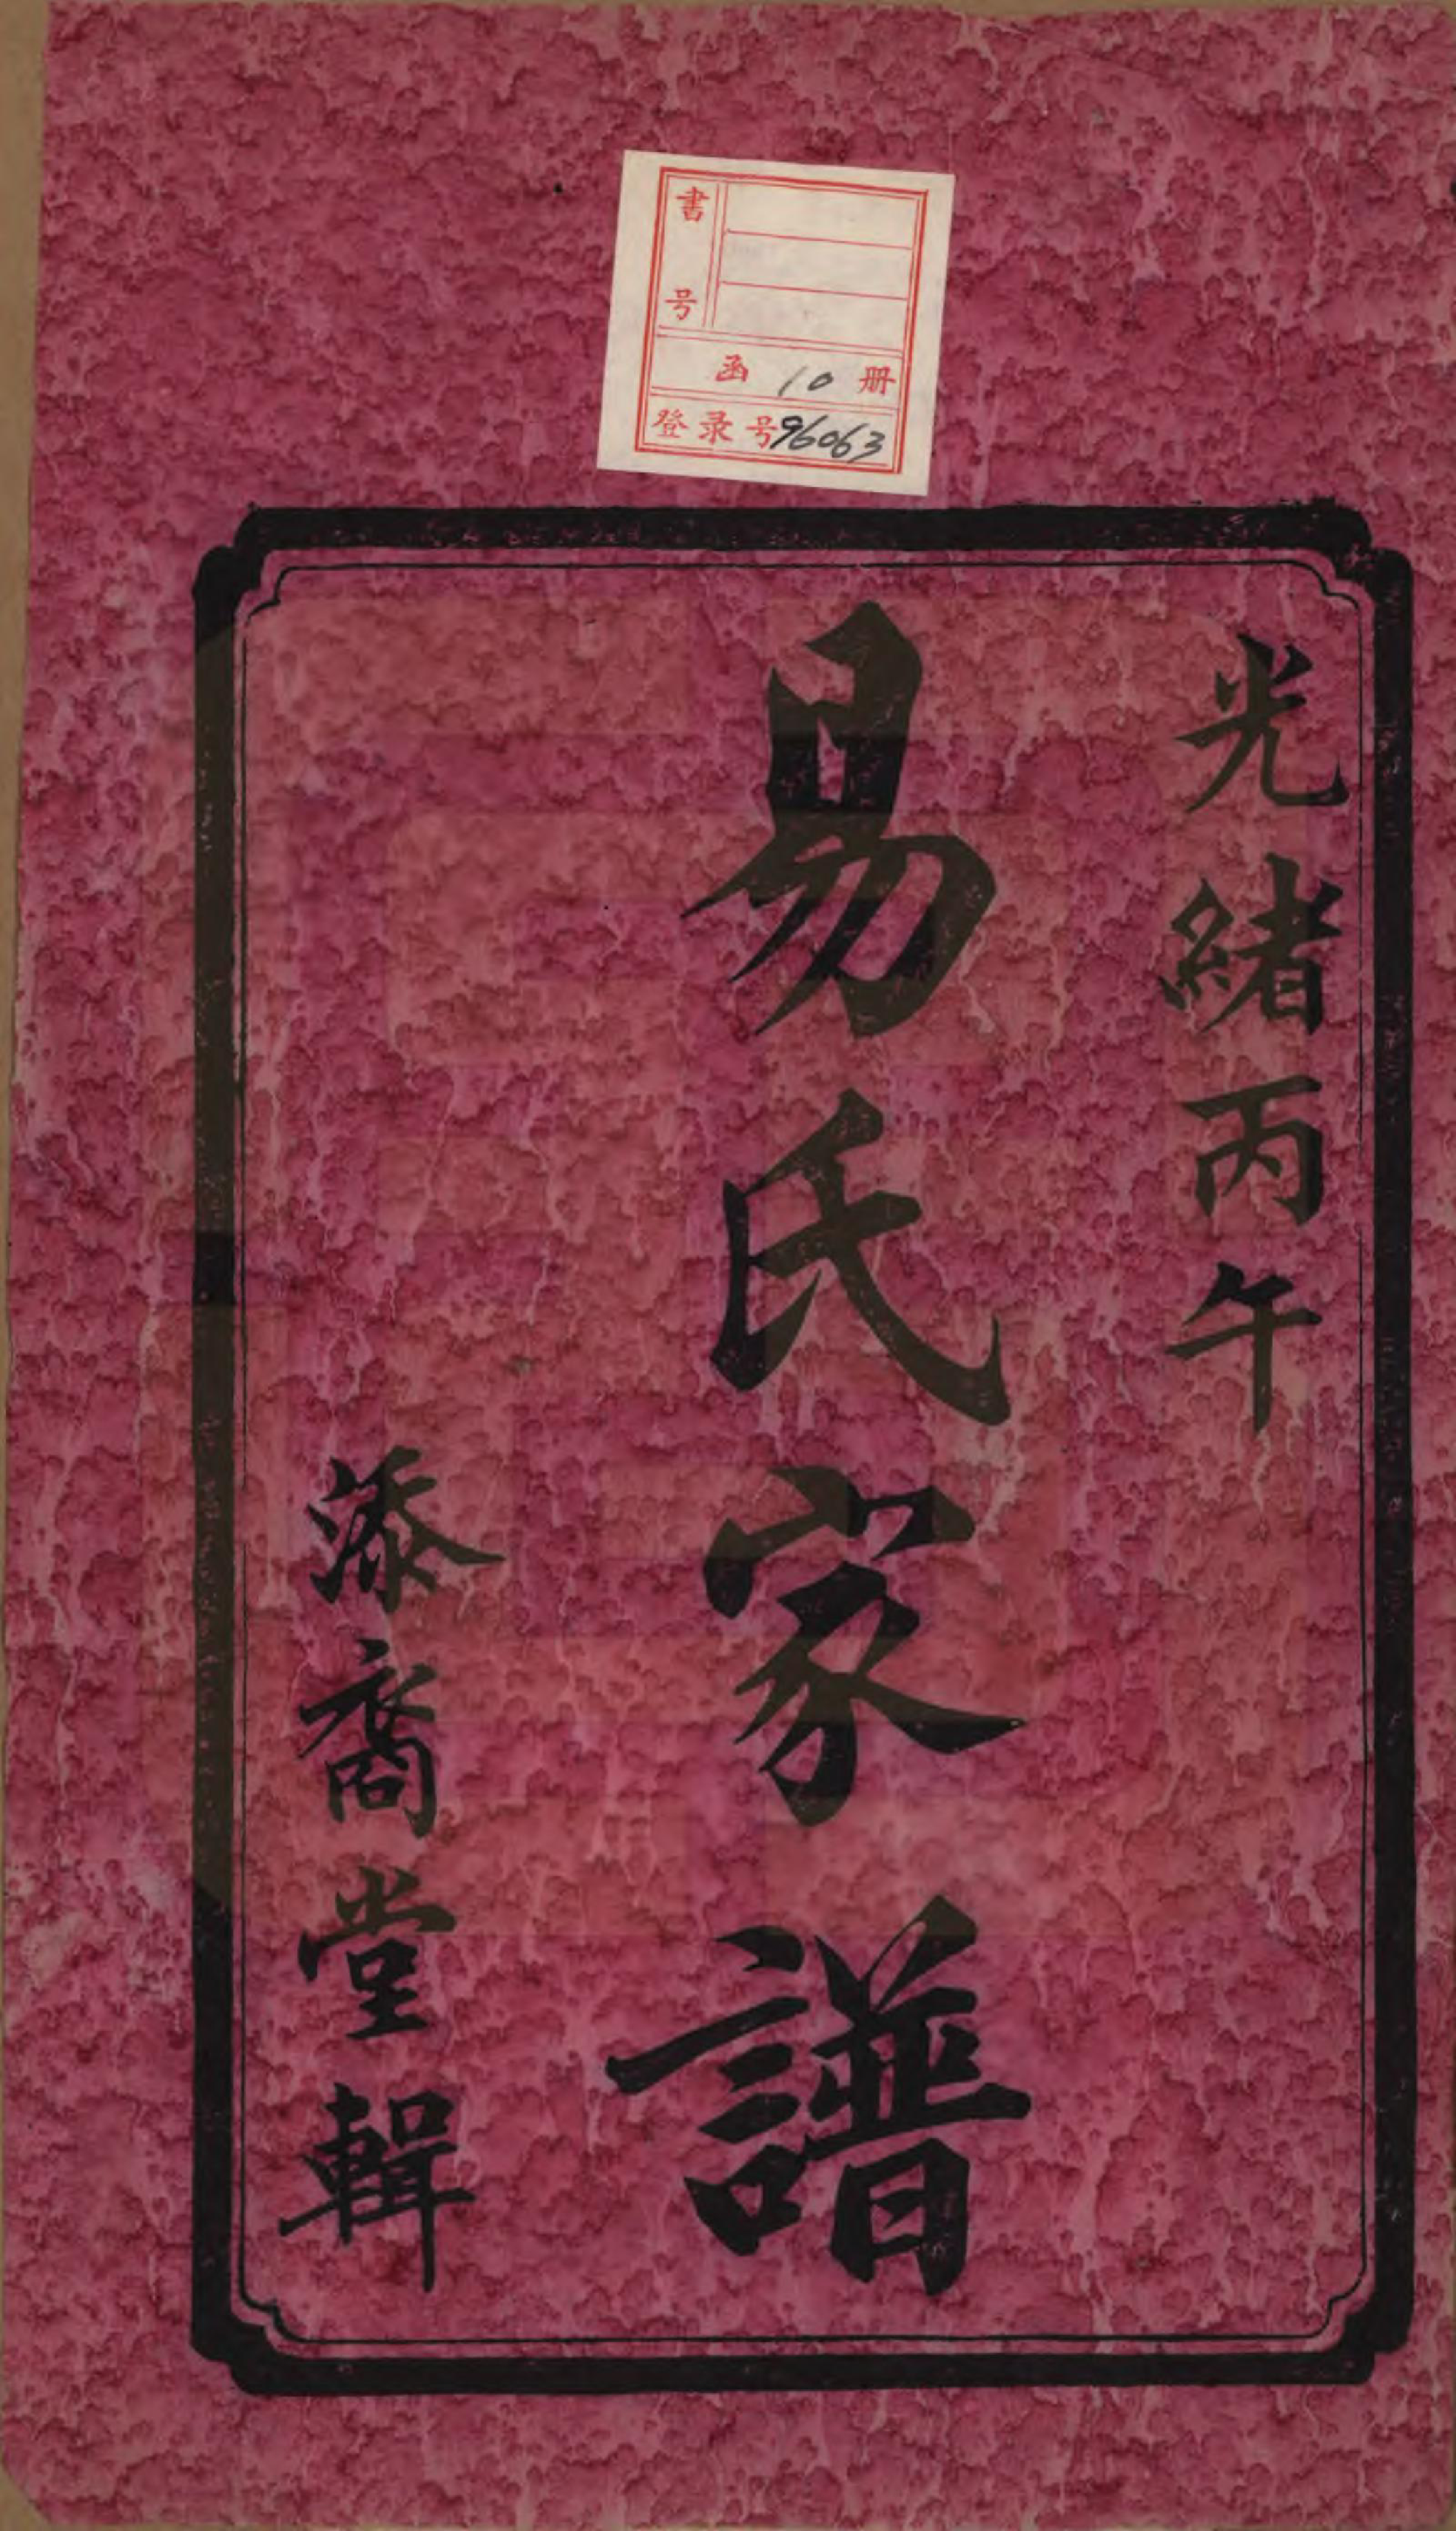 書号
函 10 册
登录号96063
光緒丙午
易氏家譜
添裔堂輯